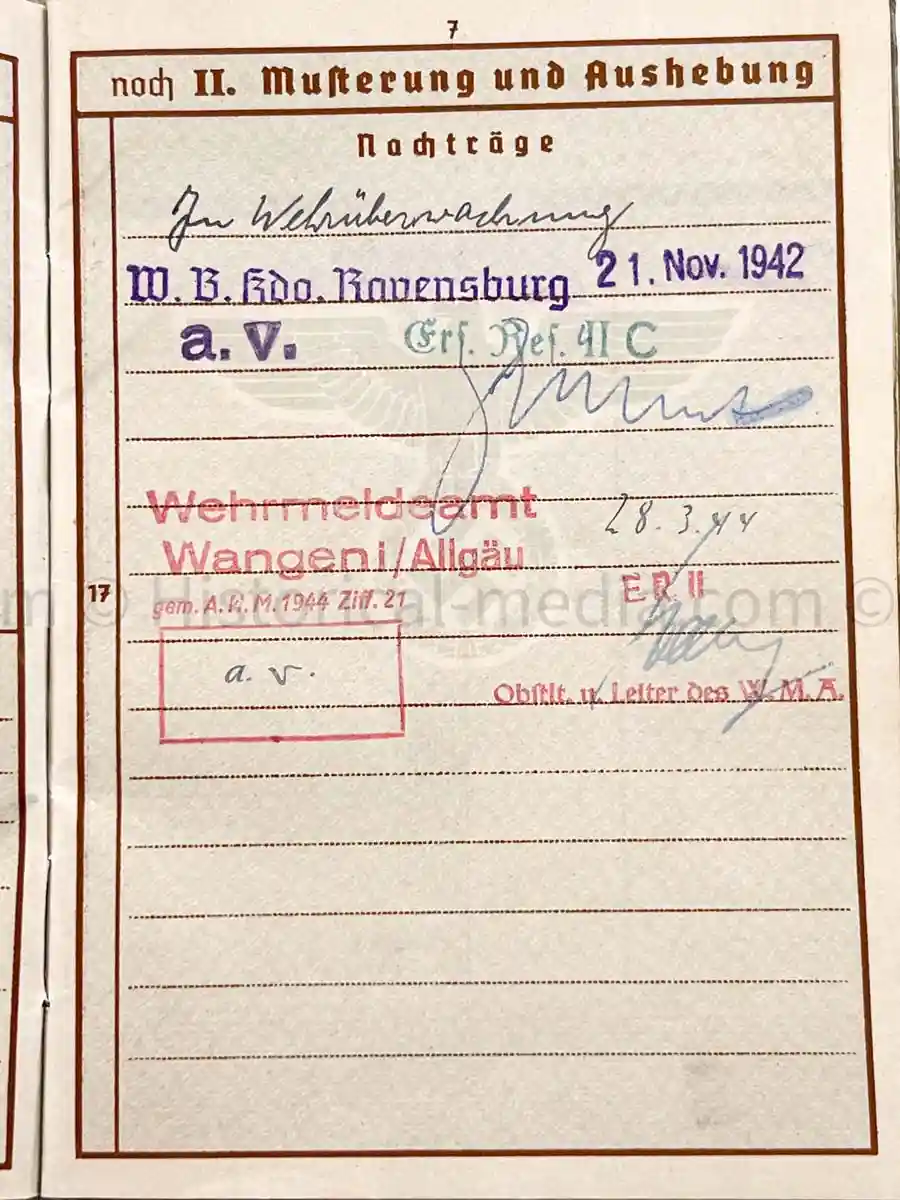 7
noch II. Musterung und Aushebung
Nachträge
In Wehrüberwachnung
W. B. Kdo. Ravensburg 21. Nov. 1942
a. v. Ers. Res. II C
Wehrmeldeamt 28.3.44
Wangen i/Allgäu
17 gem. A. H. M. 1944 Ziff. 21 E R II
a. v.
Obstlt. u. Leiter des W. M. A.
© Historical-media.com ©